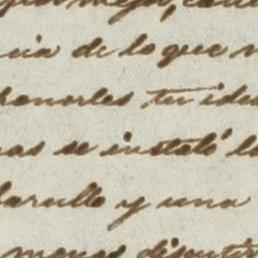 mejor,
cia de lo que
ponerles tu idea
as se instaló l
barullo y una
menos discutir